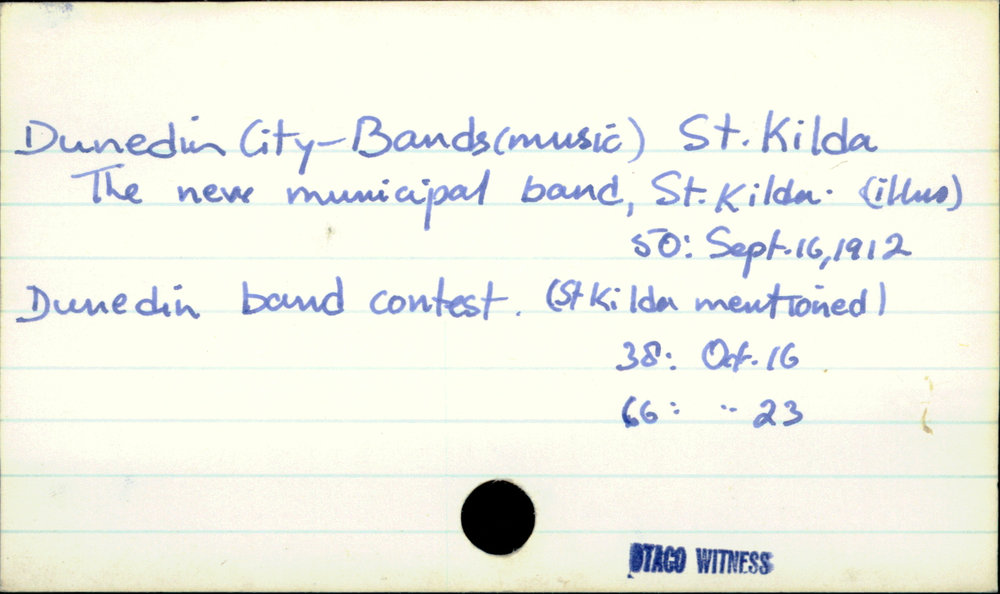 Dunedin City-Bands(music) St. Kilda
The new municipal band, St. Kilda. (illus)
50: Sept. 16, 1912
Dunedin band contest. (St Kilda mentioned)
38: Oct. 16
66: " 23
OTAGO WITNESS